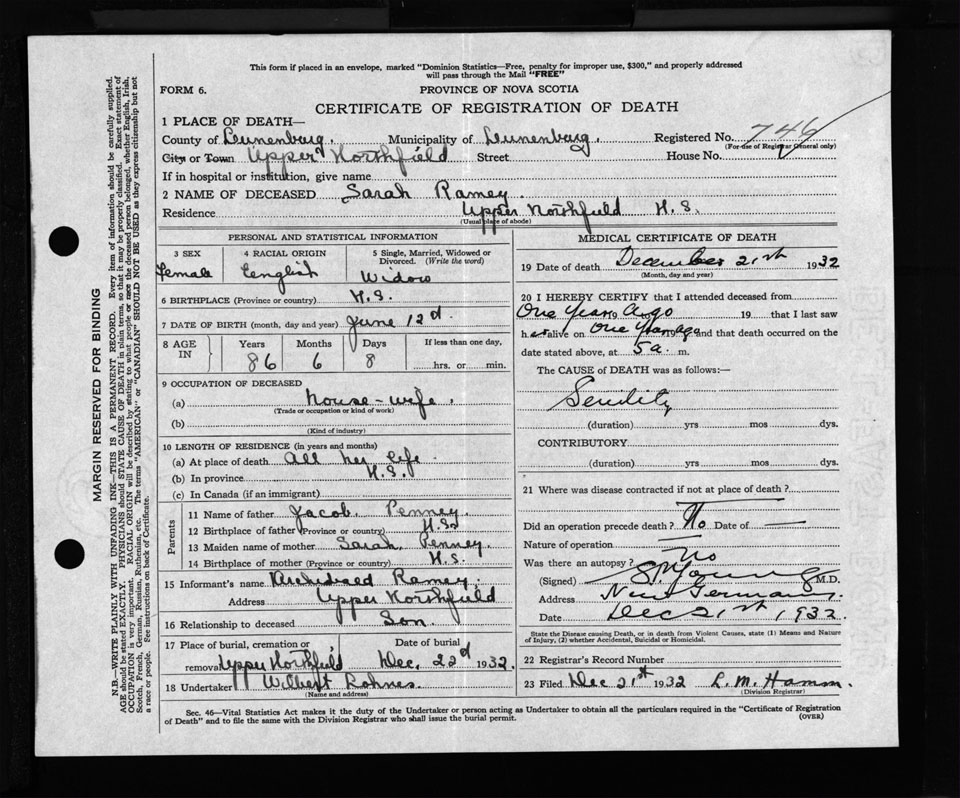 This form if placed in an envelope, marked "Dominion Statistics—Free, penalty for improper use, $300," and properly addressed
will pass through the Mail "FREE"
FORM 6.
PROVINCE OF NOVA SCOTIA
CERTIFICATE OF REGISTRATION OF DEATH
1 PLACE OF DEATH—
County of Lunenburg. Municipality of Lunenburg. Registered No. 746
(For use of Registrar General only)
City or Town Upper Northfield Street House No.
If in hospital or institution, give name
2 NAME OF DECEASED Sarah Ramey.
Residence Upper Northfield N.S.
(Usual place of abode)
PERSONAL AND STATISTICAL INFORMATION
3 SEX 4 RACIAL ORIGIN 5 Single, Married, Widowed or
Divorced. (Write the word)
Female English Widow
6 BIRTHPLACE (Province or country) N.S.
7 DATE OF BIRTH (month, day and year) June 12d.
8 AGE IN Years Months Days If less than one day,
86 6 8 hrs. or min.
9 OCCUPATION OF DECEASED
(a) house-wife.
(Trade or occupation or kind of work)
(b)
(Kind of industry)
10 LENGTH OF RESIDENCE (in years and months)
(a) At place of death all her life
(b) In province N.S.
(c) In Canada (if an immigrant)
Parents
11 Name of father Jacob Penney.
12 Birthplace of father (Province or country) N.S.
13 Maiden name of mother Sarah Penney.
14 Birthplace of mother (Province or country) N.S.
15 Informant's name Archibald Ramey.
Address Upper Northfield
16 Relationship to deceased Son.
17 Place of burial, cremation or Date of burial
removal Upper Northfield Dec, 22d 1932.
18 Undertaker Wilbert
(Name and address)
MEDICAL CERTIFICATE OF DEATH
19 Date of death December 21st 1932
(Month, day and year)
20 I HEREBY CERTIFY that I attended deceased from
One Year Ago 19 that I last saw
her alive on One Year ago 19 and that death occurred on the
date stated above, at 5 a. m.
The CAUSE of DEATH was as follows:—
Senility
(duration) yrs mos dys.
CONTRIBUTORY
(duration) yrs mos dys.
21 Where was disease contracted if not at place of death?
Did an operation precede death? No Date of —
Nature of operation —
Was there an autopsy? No
(Signed) Young M.D.
Address New Germany.
Date Dec 21st 1932
State the Disease causing Death, or in death from Violent Causes, state (1) Means and Nature
of Injury, (2) whether Accidental, Suicidal or Homicidal.
22 Registrar's Record Number
23 Filed Dec 21st 1932 L. M. Hamm.
(Division Registrar)
Sec. 46—Vital Statistics Act makes it the duty of the Undertaker or person acting as Undertaker to obtain all the particulars required in the "Certificate of Registration
of Death" and to file the same with the Division Registrar who shall issue the burial permit.
(OVER)
MARGIN RESERVED FOR BINDING
N.B.—WRITE PLAINLY WITH UNFADING INK—THIS IS A PERMANENT RECORD. Every item of information should be carefully supplied.
AGE should be stated EXACTLY. PHYSICIANS should STATE CAUSE OF DEATH in plain terms, so that it may be properly classified. Exact statement of
OCCUPATION is very important. RACIAL ORIGIN will be described by stating to what people or race the deceased person belonged, whether English, Irish,
Scotch, French, German, Russian, Ruthenian, etc. The terms "AMERICAN" or "CANADIAN" SHOULD NOT BE USED as they express citizenship but not
a race or people. See instructions on back of Certificate.